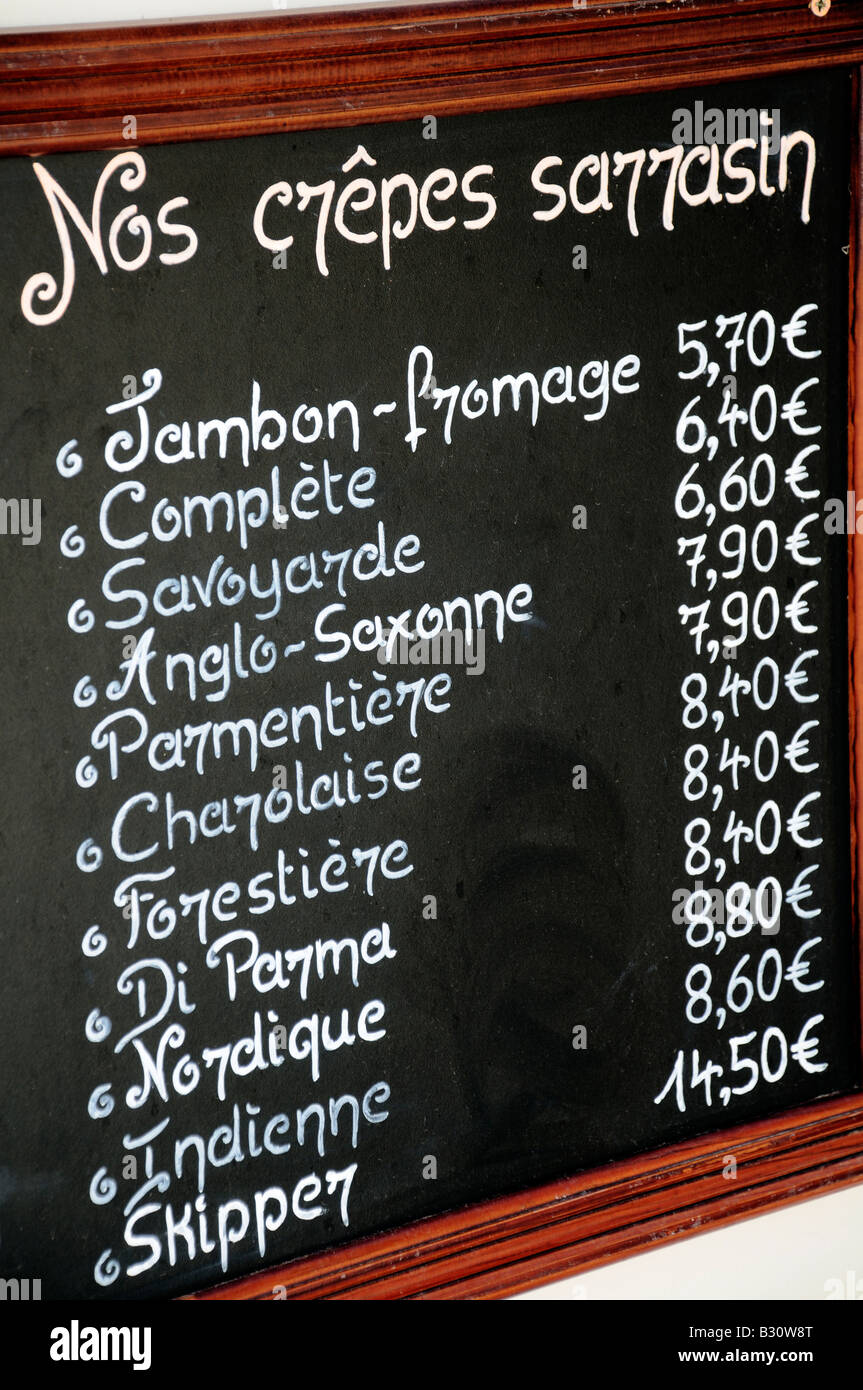 Nos crêpes sarrasin
Jambon-fromage 5,70€
Complète 6,40€
Savoyarde 6,60€
Anglo-Saxonne 7,90€
Parmentière 7,90€
Charolaise 8,40€
Forestière 8,40€
Di Parma 8,40€
Nordique 8,80€
Indienne 8,60€
Skipper 14,50€
alamy
Image ID: B30W8T
www.alamy.com